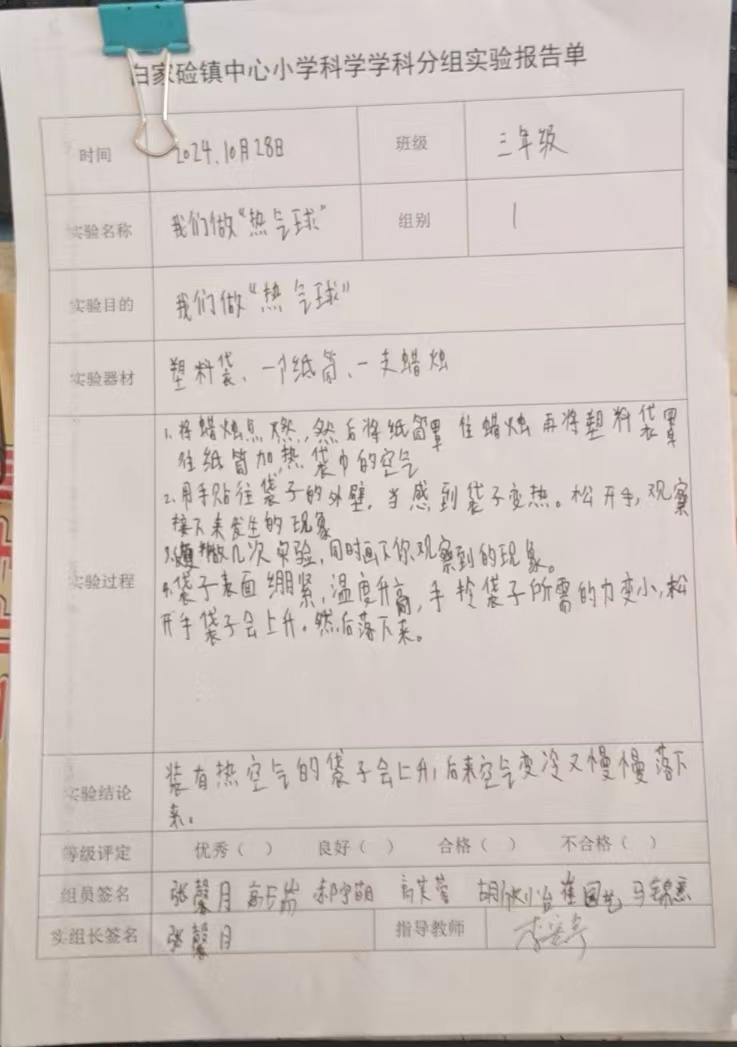 白家硷镇中心小学科学学科分组实验报告单
时间 2024.10月28日 班级 三年级
实验名称 我们做“热气球” 组别 1
实验目的 我们做“热气球”
实验器材 塑料袋、一个纸筒、一支蜡烛
实验过程
1.将蜡烛点燃,然后将纸筒罩住蜡烛再将塑料袋罩
住纸筒加热袋中的空气
2.用手贴住袋子的外壁,当感到袋子变热。松开手,观察
接下来发生的现象
3.重复做几次实验,同时画下你观察到的现象。
4.袋子表面绷紧,温度升高,手拎袋子所需的力变小,松
开手袋子会上升。然后落下来。
实验结论 装有热空气的袋子会上升,后来空气变冷又慢慢落下
来。
等级评定 优秀( ) 良好( ) 合格( ) 不合格( )
组员签名 张馨月
实组长签名 张馨月 指导教师